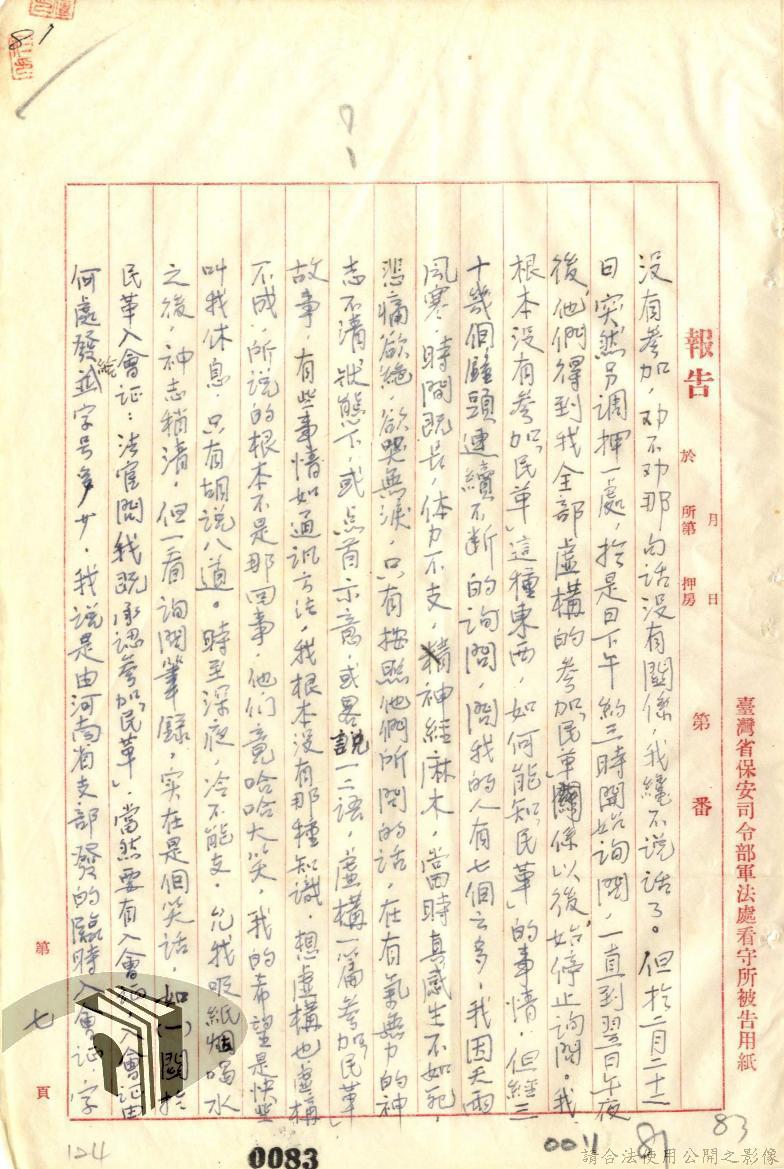 臺灣省保安司令部軍法處看守所被告用紙
報告
於 月 日
所第 押房
第 番
沒有參加，功不功那句話沒有關係，我纔不说话了。但於二月二十二
日，突然另調押一處，於是日下午約三時開始詢問，一直到翌日午夜
後，他們得到我全部虛構的參加「民革」關係以後，始停止詢問。我
根本沒有參加「民革」這種東西，如何能知「民革」的事情，但經三
十幾個鐘頭連續不断的詢問，問我的人有七個之多，我因天雨
風寒，時間既長，体力不支，精神經麻木，當時真感生不如死，
悲痛欲絕，欲哭無淚，只有按照他們所問的话，在有氣無力的神
志不清狀態下，或点首示意，或畧說一二語，虛構一篇參加「民革」
故事，有些事情如通訊方法，我根本沒有那種知識，想虛構也虛構
不成，所说的根本不是那回事，他们竟哈哈大笑，我的希望是快些
叫我休息，只有胡说八道。時至深夜，冷不能支，允我吸紙烟喝水
之後，神志稍清，但一看詢問筆録，实在是個笑话，如(一)關於
民革入會証：法官問我既承認參加「民革」，當然要有入會証，入會証由
何處發給並字号多少，我说是由河南省支部發的臨時入會証，字
第 七 頁
0083
0011
81
83
124
請合法使用公開之影像